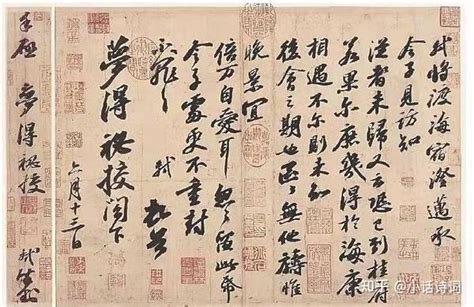 軾將渡海宿澄邁承
令子見訪知
從者未歸又云恐已到桂府
若果爾庶幾得於海康
相遇不爾則未知
後會之期也區區無他禱惟
晚景宜
倍万自愛耳怱怱留此帋
令子處更不重封
不罪不罪 軾 頓首
夢得祕校閤下
六月十三日
手啟 夢得祕校 軾封
知乎 @小话诗词